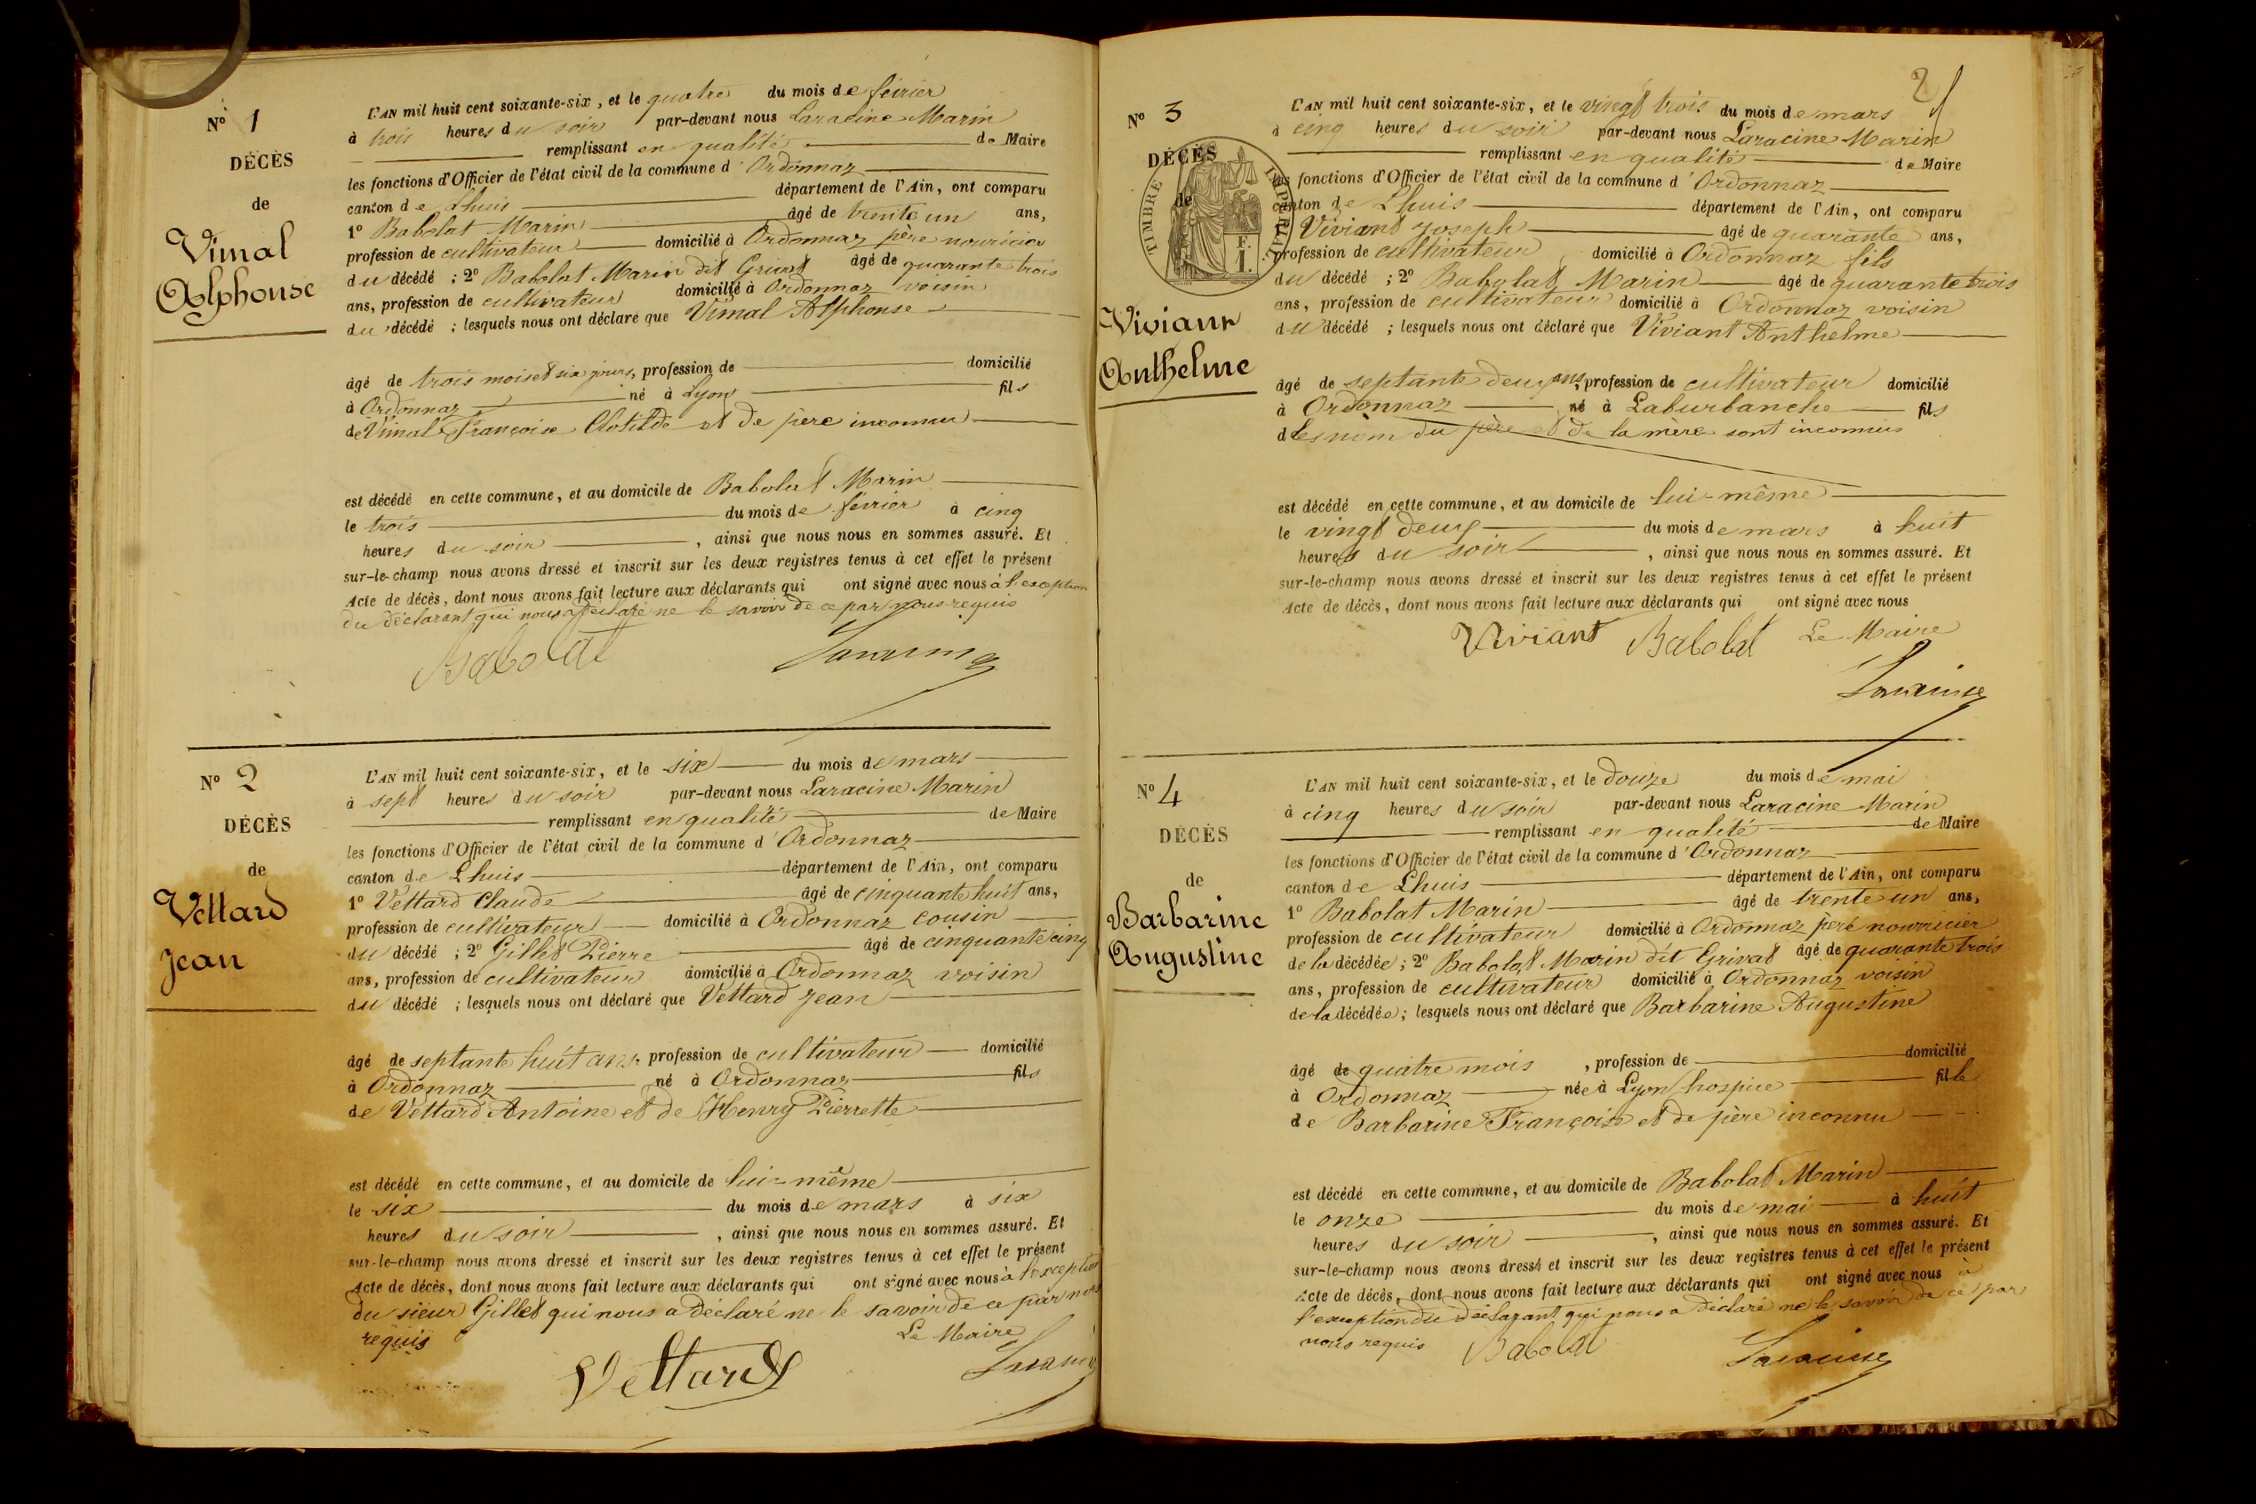 N° 1
DÉCÈS
de
Vimal
Alphonse
L'AN mil huit cent soixante-six, et le quatre du mois de février
à trois heures du soir par-devant nous Laracine Marin
remplissant en qualité de Maire
les fonctions d'Officier de l'état civil de la commune d'Ordonnaz
canton de Lhuis département de l'Ain, ont comparu
1° Babolat Marin âgé de trente un ans,
profession de cultivateur domicilié à Ordonnaz père nourricier
du décédé ; 2° Babolat Marin dit Grivat âgé de quarante trois
ans, profession de cultivateur domicilié à Ordonnaz voisin
du décédé ; lesquels nous ont déclaré que Vimal Alphonse
âgé de trois mois et six jours, profession de domicilié
à Ordonnaz né à Lyon fils
de Vimal Françoise Clotilde et de père inconnu
est décédé en cette commune, et au domicile de Babolat Marin
le trois du mois de février à cinq
heures du soir, ainsi que nous nous en sommes assuré. Et
sur-le-champ nous avons dressé et inscrit sur les deux registres tenus à cet effet le présent
Acte de décès, dont nous avons fait lecture aux déclarants qui ont signé avec nous à l'exception
du déclarant qui nous a déclaré ne le savoir de ce par nous requis
Babolat Laracine
N° 2
DÉCÈS
de
Vettard
Jean
L'AN mil huit cent soixante-six, et le six du mois de mars
à sept heures du soir par-devant nous Laracine Marin
remplissant en qualité de Maire
les fonctions d'Officier de l'état civil de la commune d'Ordonnaz
canton de Lhuis département de l'Ain, ont comparu
1° Vettard Claude âgé de cinquante huit ans,
profession de cultivateur domicilié à Ordonnaz cousin
du décédé ; 2° Gillet Pierre âgé de cinquante cinq
ans, profession de cultivateur domicilié à Ordonnaz voisin
du décédé ; lesquels nous ont déclaré que Vettard Jean
âgé de septante huit ans, profession de cultivateur domicilié
à Ordonnaz né à Ordonnaz fils
de Vettard Antoine et de Henry Pierrette
est décédé en cette commune, et au domicile de lui-même
le six du mois de mars à six
heures du soir, ainsi que nous nous en sommes assuré. Et
sur-le-champ nous avons dressé et inscrit sur les deux registres tenus à cet effet le présent
Acte de décès, dont nous avons fait lecture aux déclarants qui ont signé avec nous à l'exception
du sieur Gillet qui nous a déclaré ne le savoir de ce par nous
requis Le Maire
Vettard Laracine
2
N° 3
DÉCÈS
de
TIMBRE IMPÉRIAL
Viviant
Anthelme
L'AN mil huit cent soixante-six, et le vingt trois du mois de mars
à cinq heures du soir par-devant nous Laracine Marin
remplissant en qualité de Maire
les fonctions d'Officier de l'état civil de la commune d'Ordonnaz
canton de Lhuis département de l'Ain, ont comparu
Viviant Joseph âgé de quarante ans,
profession de cultivateur domicilié à Ordonnaz fils
du décédé ; 2° Babolat Marin âgé de quarante trois
ans, profession de cultivateur domicilié à Ordonnaz voisin
du décédé ; lesquels nous ont déclaré que Viviant Anthelme
âgé de septante deux ans, profession de cultivateur domicilié
à Ordonnaz né à Laburbanche fils
d les nom du père et de la mère sont inconnus
est décédé en cette commune, et au domicile de lui-même
le vingt deux du mois de mars à huit
heures du soir, ainsi que nous nous en sommes assuré. Et
sur-le-champ nous avons dressé et inscrit sur les deux registres tenus à cet effet le présent
Acte de décès, dont nous avons fait lecture aux déclarants qui ont signé avec nous
Viviant Babolat Le Maire
Laracine
N° 4
DÉCÈS
de
Barbarine
Augustine
L'AN mil huit cent soixante-six, et le douze du mois de mai
à cinq heures du soir par-devant nous Laracine Marin
remplissant en qualité de Maire
les fonctions d'Officier de l'état civil de la commune d'Ordonnaz
canton de Lhuis département de l'Ain, ont comparu
1° Babolat Marin âgé de trente un ans,
profession de cultivateur domicilié à Ordonnaz père nourricier
de la décédée ; 2° Babolat Marin dit Grivat âgé de quarante trois
ans, profession de cultivateur domicilié à Ordonnaz voisin
de la décédée ; lesquels nous ont déclaré que Barbarine Augustine
âgé de quatre mois, profession de domicilié
à Ordonnaz née à Lyon hospice fille
de Barbarine Françoise et de père inconnu
est décédé en cette commune, et au domicile de Babolat Marin
le onze du mois de mai à huit
heures du soir, ainsi que nous nous en sommes assuré. Et
sur-le-champ nous avons dressé et inscrit sur les deux registres tenus à cet effet le présent
Acte de décès, dont nous avons fait lecture aux déclarants qui ont signé avec nous à
l'exception du déclarant qui nous a déclaré ne le savoir de ce par
nous requis Babolat Laracine